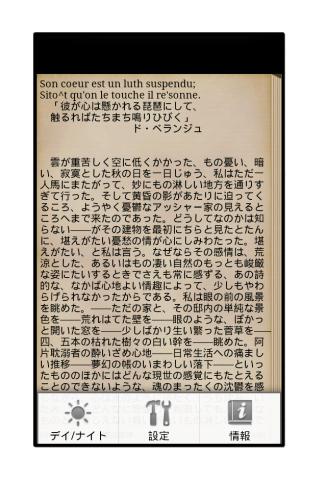 Son coeur est un luth suspendu;
Sito^t qu'on le touche il re'sonne.
「彼が心は懸かれる琵琶にして、
触るればたちまち鳴りひびく」
ド・ベランジュ
雲が重苦しく空に低くかかった、もの憂い、暗
い、寂寞とした秋の日を一日じゅう、私はただ一
人馬にまたがって、妙にもの淋しい地方を通りす
ぎて行った。そして黄昏の影があたりに迫ってく
るころ、ようやく憂鬱なアッシャー家の見えると
ころへまで来たのであった。どうしてなのかは知
らない――がその建物を最初にちらと見たとたん
に、堪えがたい憂愁の情が心にしみわたった。堪
えがたい、と私は言う。なぜならその感情は、荒
涼とした、あるいはもの凄い自然のもっとも峻厳
な姿にたいするときでさえも常に感ずる、あの詩
的な、なかば心地よい情趣によって、少しもやわ
らげられなかったからである。私は眼の前の風景
を眺めた。――ただの家と、その邸内の単純な景
色を――荒れはてた壁を――眼のような、ぽかっ
と開いた窓を――少しばかり生い繁った菅草を――
四、五本の枯れた樹々の白い幹を――眺めた。阿
片耽溺者の酔いざめ心地――日常生活への痛まし
い推移――夢幻の帳のいまわしい落下――といっ
たもののほかにはどんな現世の感覚にもたとえる
ことのできないような、魂のまったくの沈鬱を感
デイ/ナイト
設定
情報